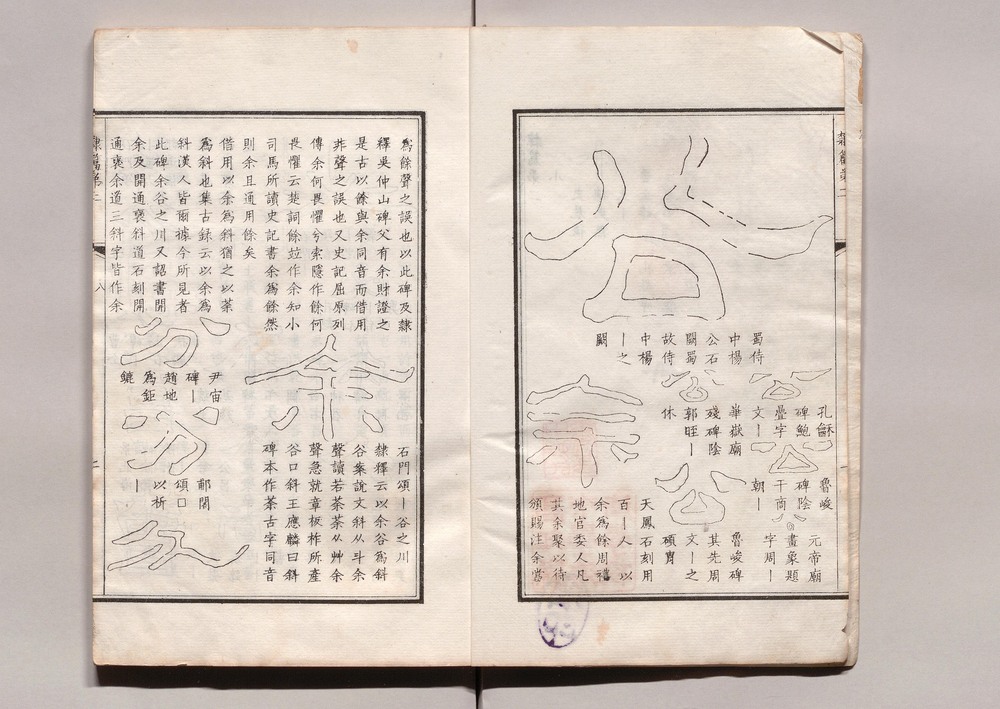 隸篇第二
公
蜀侍
中楊
公石
闕蜀
故侍
中楊
丨之
闕
公
孔龢
碑鮑
疊字
文丨
公
華嶽廟
殘碑陰
郭旺丨
休
公
魯峻
碑陰
干商
朝丨
公
元帝廟
畫象題
字周丨
公
魯峻碑
其先周
文丨之
碩胄
余
天鳳石刻用
百丨人 以
余為餘周禮
地官委人凡
其余聚以待
頒賜注余當
為餘聲之誤也以此碑及隸
釋吳仲山碑父有余財證之
是古以餘與余同音而借用
非聲之誤也又史記屈原列
傳余何畏懼兮索隱作餘何
畏懼云楚詞餘竝作余知小
司馬所讀史記書余為餘然
則余且通用餘矣
余
石門頌丨谷之川
隸釋云以余谷為斜
谷案說文斜从斗余
聲讀若荼荼从艸余
聲急就章板柞所產
谷口斜王應麟曰斜
碑本作荼古字同音
借用以余為斜猶之以荼
為斜也集古錄云以余為
斜漢人皆爾據今所見者
此碑余谷之川又詔書開
余及開通褒斜道石刻開
通褒余道三斜字皆作余
分
尹宙
碑丨
趙地
為鉅
鑣
分
郙閣
頌口
以析
丨
隸篇第二
八